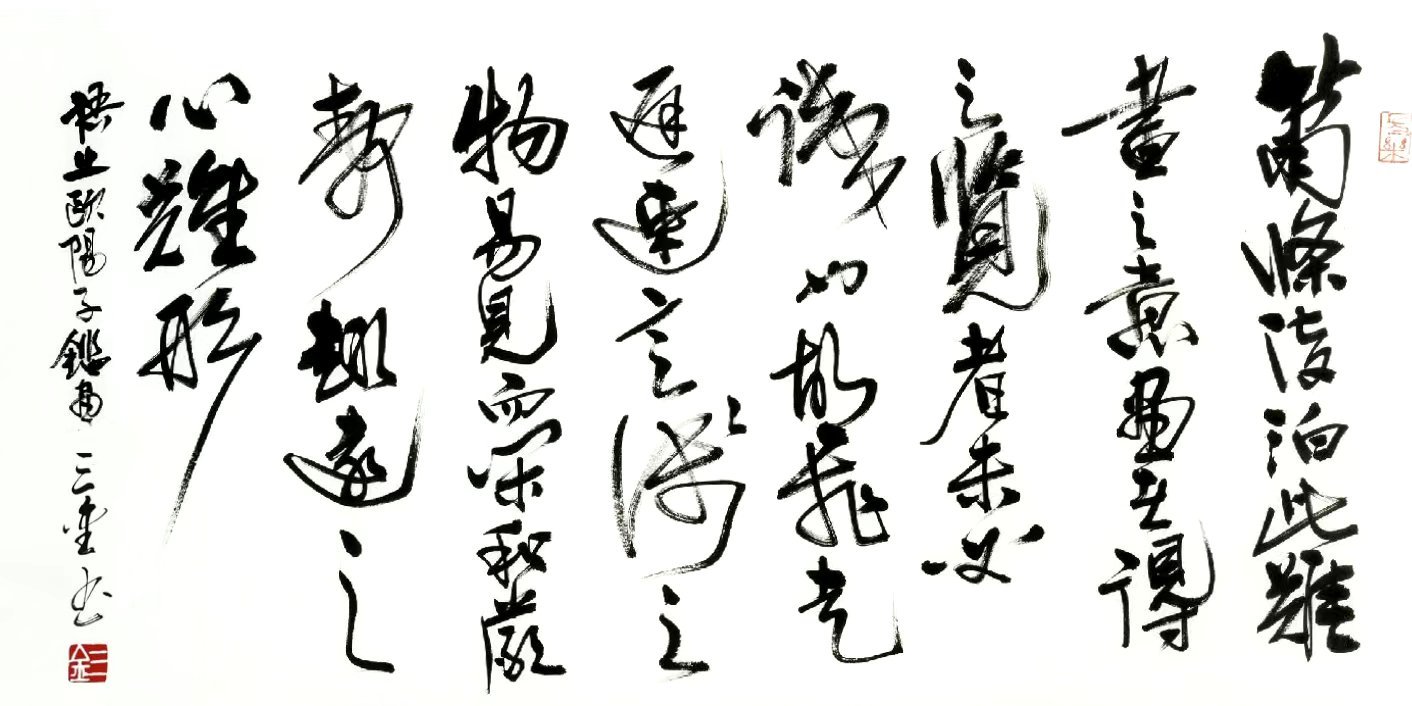 蕭條淡泊此難
畫之意畫者得
之覽者未必
識也故飛走
遲速意淺之
物易見而閑和嚴
靜趣遠之
心難形
語出歐陽子鑑畫 三金書
三金